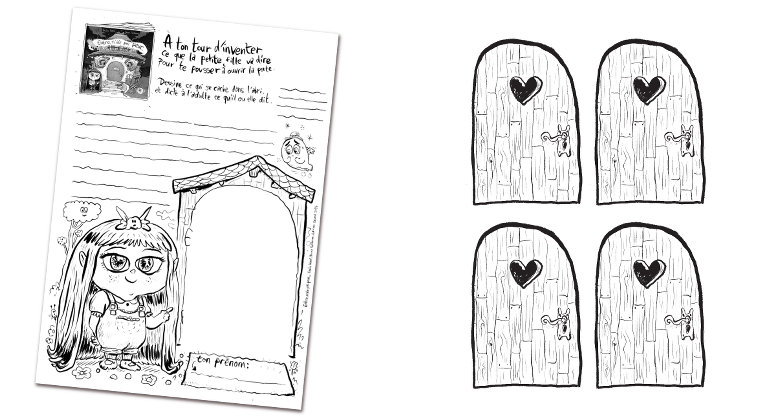 A ton tour d'inventer
ce que la petite fille va dire
Pour te pousser à ouvrir la porte.
Dessine ce qui se cache dans l'abri,
et dicte à l'adulte ce qu'il ou elle dit.
ton prénom: